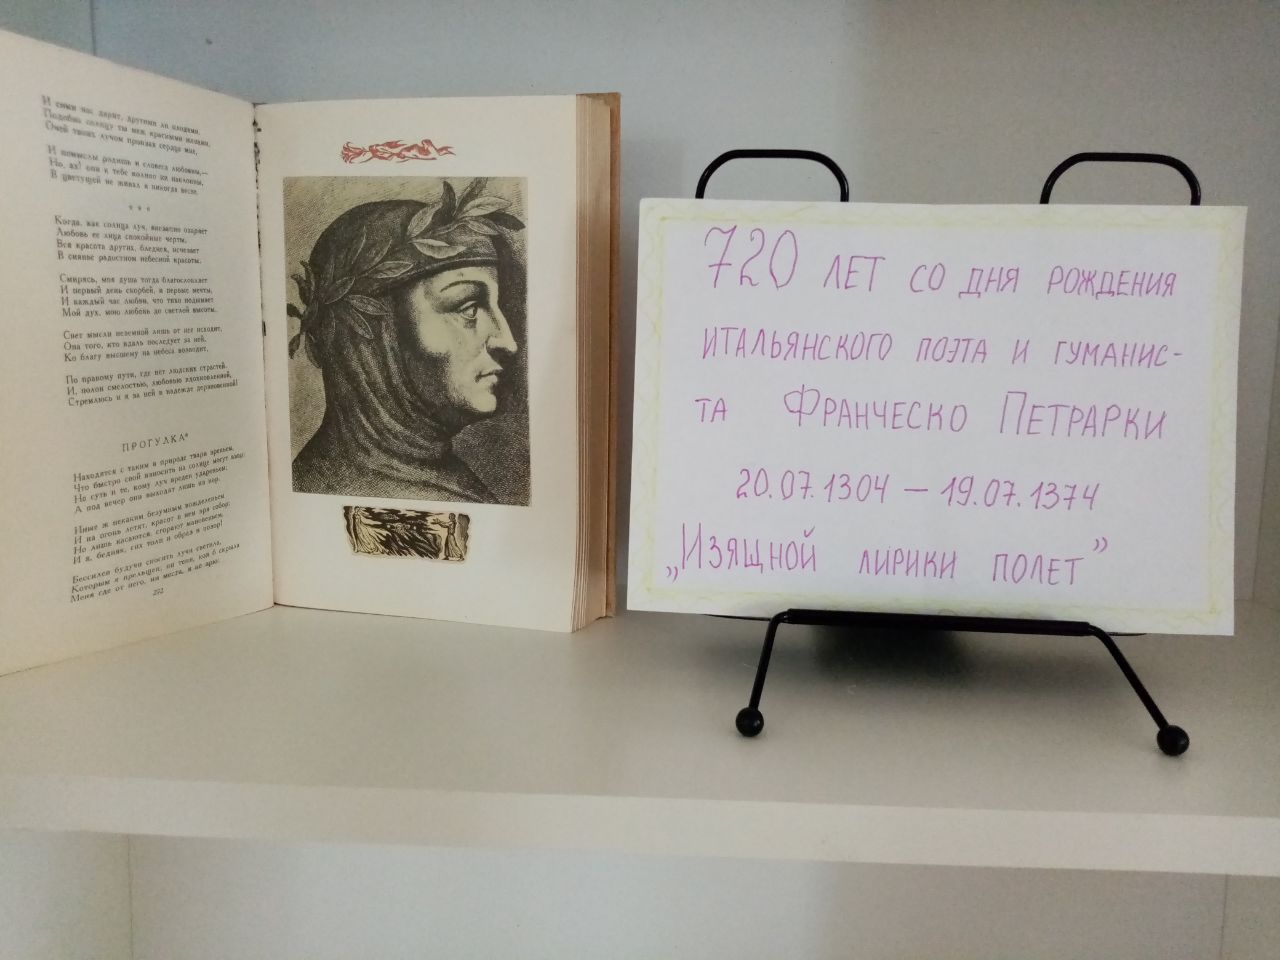 И сими нас дарит, другими ли плодами,
Подобна солнцу ты меж красными женами,
Очей твоих лучом пронзая сердца мне,
И помыслы родишь и словеса любовны,—
Но, ах! они к тебе колико ни наклонны,
В цветущей не живал я никогда весне.
* * *
Когда, как солнца луч, внезапно озаряет
Любовь ее лица спокойные черты,
Вся красота других, бледнея, исчезает
В сиянье радостном небесной красоты.
Смирясь, моя душа тогда благословляет
И первый день скорбей, и первые мечты,
И каждый час любви, что тихо подымает
Мой дух, мою любовь до светлой высоты.
Свет мысли неземной лишь от нее исходит,
Она того, кто вдаль последует за ней,
Ко благу высшему на небеса возводит,
По правому пути, где нет людских страстей.
И, полон смелостью, любовью вдохновенной,
Стремлюсь и я за ней в надежде дерзновенной!
ПРОГУЛКА*
Находятся с таким в природе твари зреньем,
Что быстро свой взносить на солнце могут взор;
Но суть и те, кому луч вреден удареньем;
А под вечер они выходят лишь из нор.
Иные ж некаким безумным вожделеньем
И на огонь летят, красот в нем зря собор;
Но лишь касаются, сгорают мановеньем.
И я, бедняк, сих толп и образ и позор!
Бессилен будучи сносить лучи светила,
Которым я прельщен, ни тени, кая б скрыла
Меня где от него, ни места, я не зрю:
272
720 ЛЕТ СО ДНЯ РОЖДЕНИЯ
ИТАЛЬЯНСКОГО ПОЭТА И ГУМАНИС-
ТА ФРАНЧЕСКО ПЕТРАРКИ
20.07.1304 – 19.07.1374
„ИЗЯЩНОЙ ЛИРИКИ ПОЛЕТ”